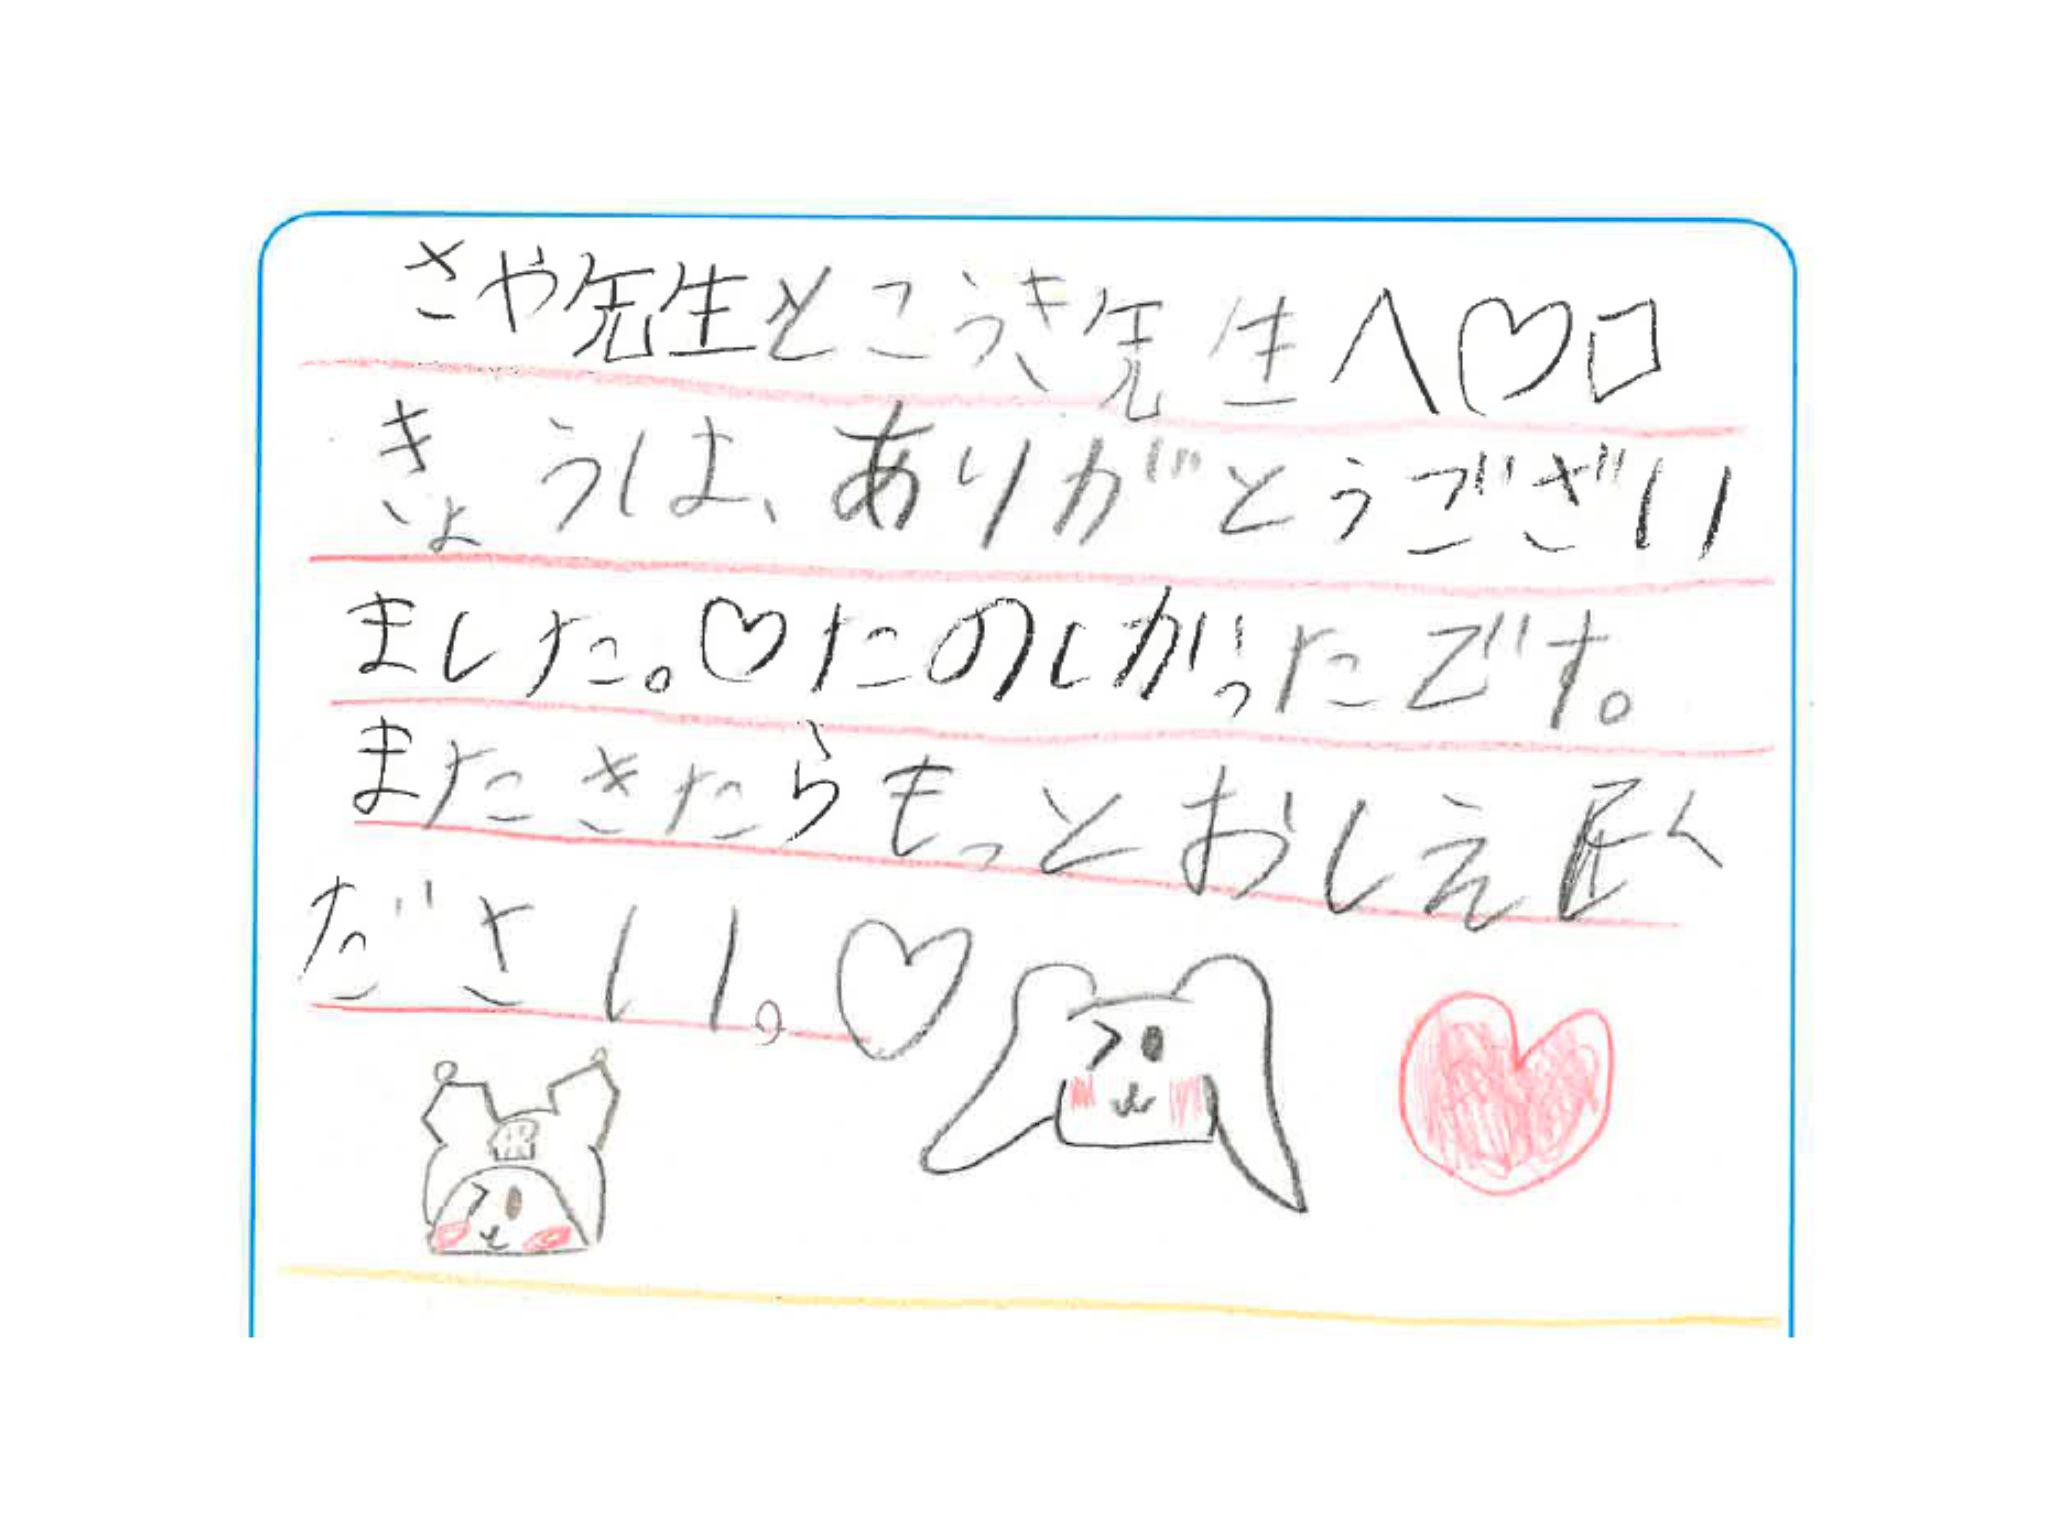 さや先生とこうき先生へ♡□
きょうは、ありがとうござい
ました。♡たのしがったです。
またきたらもっとおしえく
ださい。♡